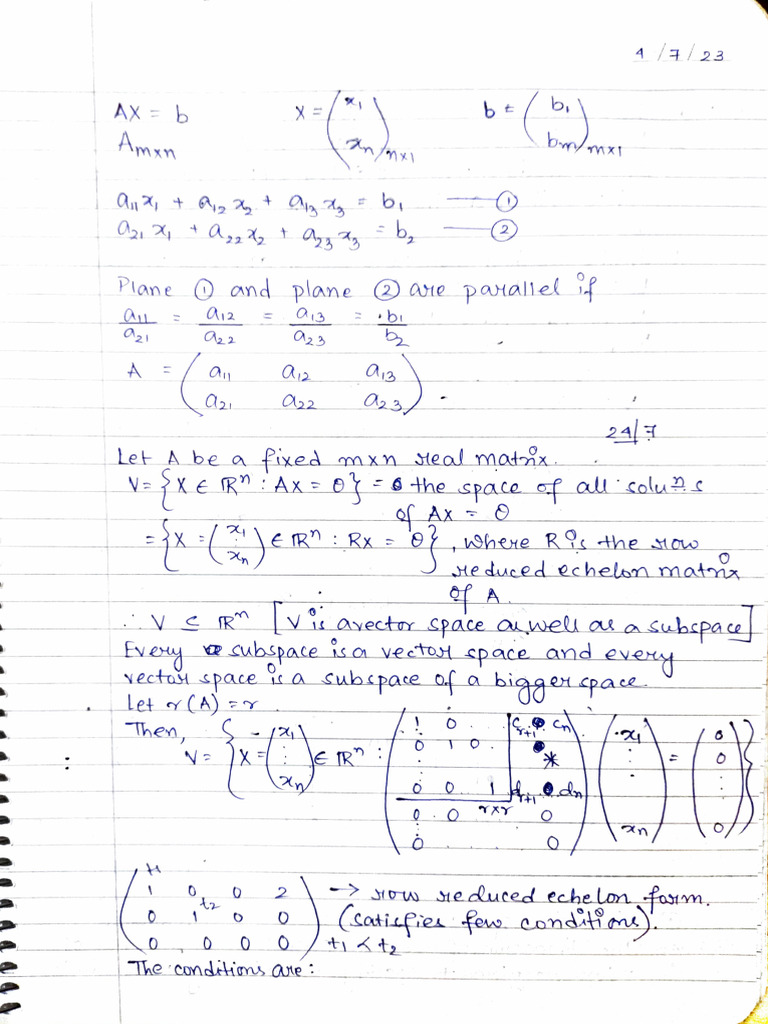 4/7/23
AX = b    X = (x₁ xₙ)ₙₓ₁    b = (b₁ bₘ)ₘₓ₁
Aₘₓₙ
a₁₁x₁ + a₁₂x₂ + a₁₃x₃ = b₁ —— ①
a₂₁x₁ + a₂₂x₂ + a₂₃x₃ = b₂ —— ②
Plane ① and plane ② are parallel if
a₁₁/a₂₁ = a₁₂/a₂₂ = a₁₃/a₂₃ = b₁/b₂
A = ( a₁₁ a₁₂ a₁₃
a₂₁ a₂₂ a₂₃ )
24/7
Let A be a fixed mxn real matrix.
V = {X ∈ ℝⁿ : AX = 0} = the space of all soluⁿs
of AX = 0
= {X = (x₁ xₙ) ∈ ℝⁿ : RX = 0}, where R is the row
reduced echelon matrix
of A.
∴ V ⊆ ℝⁿ [V is a vector space as well as a subspace]
Every subspace is a vector space and every
vector space is a subspace of a bigger space.
Let r(A) = r
Then,
V = {X = (x₁ ⋮ xₙ) ∈ ℝⁿ :
( 1 0 . . cᵣ₊₁ . cₙ
0 1 0 .
⋮ *
0 0 1 dᵣ₊₁ . dₙ
r×r
0 0 0
⋮
0 0 ) ( x₁ ⋮ xₙ ) = ( 0 0 ⋮ 0 )}
t₁
( 1 0 0 2 → row reduced echelon form.
t₂
0 1 0 0 (satisfies few conditions).
0 0 0 0 ) t₁ < t₂
The conditions are: